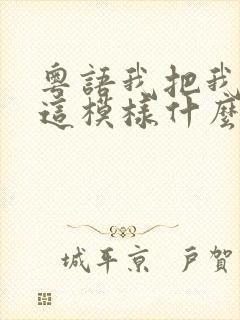 粵語我把我
這模樣什麼
城平京 戶賀